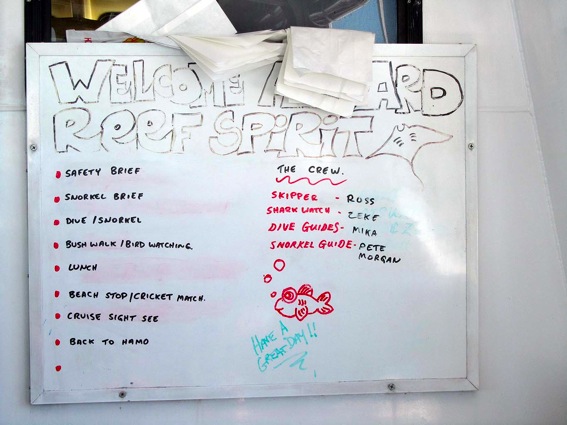 WELCOME ARD
REEF SPIRIT
SAFETY BRIEF
SNORKEL BRIEF
DIVE / SNORKEL
BUSH WALK / BIRD WATCHING.
LUNCH
BEACH STOP / CRICKET MATCH.
CRUISE SIGHT SEE
BACK TO HAMO
THE CREW.
SKIPPER - ROSS
SHARK WATCH - ZEKE
DIVE GUIDES - MIKA
SNORKEL GUIDE - PETE
MORGAN
HAVE A
GREAT DAY!!